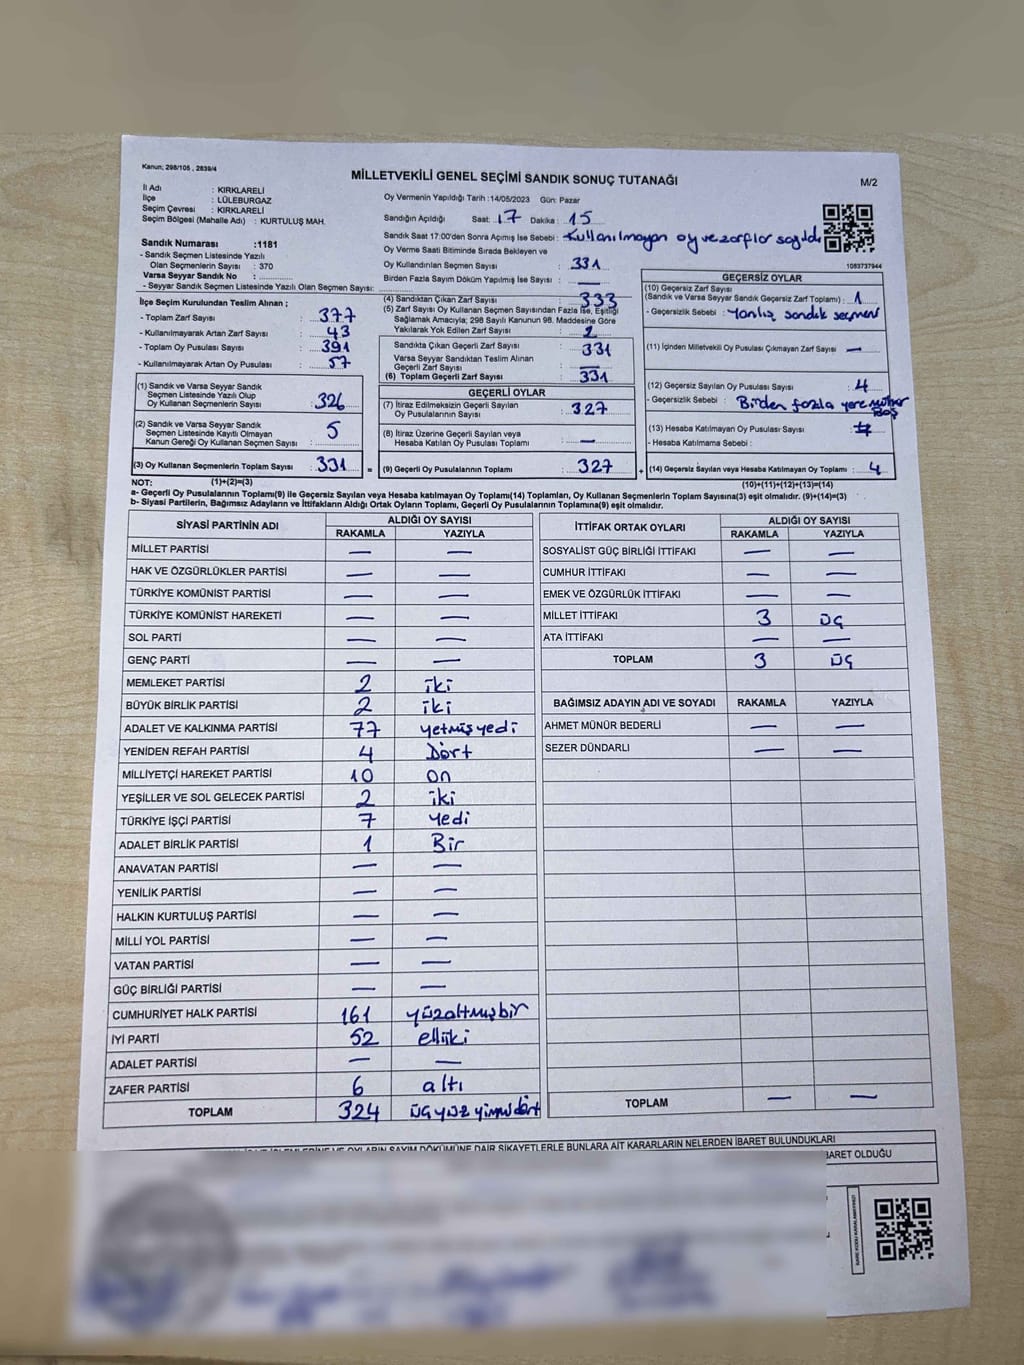 Kanun; 298/105 , 2839/4
MİLLETVEKİLİ GENEL SEÇİMİ SANDIK SONUÇ TUTANAĞI
M/2
İl Adı : KIRKLARELİ
İlçe : LÜLEBURGAZ
Seçim Çevresi : KIRKLARELİ
Seçim Bölgesi (Mahalle Adı) : KURTULUŞ MAH.
Oy Vermenin Yapıldığı Tarih : 14/05/2023 Gün: Pazar
Sandığın Açıldığı Saat: 17 Dakika : 15
Sandık Saat 17:00'den Sonra Açımış İse Sebebi : Kullanılmayan oy ve zarflar sayıldı
Oy Verme Saati Bitiminde Sırada Bekleyen ve
Oy Kullandırılan Seçmen Sayısı : 331
Birden Fazla Sayım Döküm Yapılmış İse Sayısı : —
1083737944
Sandık Numarası :1181
- Sandık Seçmen Listesinde Yazılı
Olan Seçmenlerin Sayısı : 370
Varsa Seyyar Sandık No :
- Seyyar Sandık Seçmen Listesinde Yazılı Olan Seçmen Sayısı:
İlçe Seçim Kurulundan Teslim Alınan ;
- Toplam Zarf Sayısı : 377
- Kullanılmayarak Artan Zarf Sayısı : 43
- Toplam Oy Pusulası Sayısı : 391
- Kullanılmayarak Artan Oy Pusulası : 57
(1) Sandık ve Varsa Seyyar Sandık
Seçmen Listesinde Yazılı Olup
Oy Kullanan Seçmenlerin Sayısı : 326
(2) Sandık ve Varsa Seyyar Sandık
Seçmen Listesinde Kayıtlı Olmayan
Kanun Gereği Oy Kullanan Seçmen Sayısı : 5
(3) Oy Kullanan Seçmenlerin Toplam Sayısı : 331
(1)+(2)=(3)
(4) Sandıktan Çıkan Zarf Sayısı : 333
(5) Zarf Sayısı Oy Kullanan Seçmen Sayısından Fazla İse, Eşitliği
Sağlamak Amacıyla; 298 Sayılı Kanunun 98. Maddesine Göre
Yakılarak Yok Edilen Zarf Sayısı : 2
Sandıkta Çıkan Geçerli Zarf Sayısı : 331
Varsa Seyyar Sandıktan Teslim Alınan
Geçerli Zarf Sayısı : —
(6) Toplam Geçerli Zarf Sayısı : 331
GEÇERLİ OYLAR
(7) İtiraz Edilmeksizin Geçerli Sayılan
Oy Pusulalarının Sayısı : 327
(8) İtiraz Üzerine Geçerli Sayılan veya
Hesaba Katılan Oy Pusulası Toplamı : —
= (9) Geçerli Oy Pusulalarının Toplamı : 327
GEÇERSİZ OYLAR
(10) Geçersiz Zarf Sayısı
(Sandık ve Varsa Seyyar Sandık Geçersiz Zarf Toplamı) : 1
- Geçersizlik Sebebi : Yanlış sandık seçmeni
(11) İçinden Milletvekili Oy Pusulası Çıkmayan Zarf Sayısı : —
(12) Geçersiz Sayılan Oy Pusulası Sayısı : 4
- Geçersizlik Sebebi : Birden fazla yere mühür
Boş
(13) Hesaba Katılmayan Oy Pusulası Sayısı :
- Hesaba Katılmama Sebebi :
+ (14) Geçersiz Sayılan veya Hesaba Katılmayan Oy Toplamı : 4
(10)+(11)+(12)+(13)=(14)
NOT:
a- Geçerli Oy Pusulalarının Toplamı(9) ile Geçersiz Sayılan veya Hesaba katılmayan Oy Toplamı(14) Toplamları, Oy Kullanan Seçmenlerin Toplam Sayısına(3) eşit olmalıdır. (9)+(14)=(3)
b- Siyasi Partilerin, Bağımsız Adayların ve İttifakların Aldığı Ortak Oyların Toplamı, Geçerli Oy Pusulalarının Toplamına(9) eşit olmalıdır.
SİYASİ PARTİNİN ADI ALDIĞI OY SAYISI
RAKAMLA YAZIYLA
MİLLET PARTİSİ — —
HAK VE ÖZGÜRLÜKLER PARTİSİ — —
TÜRKİYE KOMÜNİST PARTİSİ — —
TÜRKİYE KOMÜNİST HAREKETİ — —
SOL PARTİ — —
GENÇ PARTİ — —
MEMLEKET PARTİSİ 2 iki
BÜYÜK BİRLİK PARTİSİ 2 iki
ADALET VE KALKINMA PARTİSİ 77 yetmişyedi
YENİDEN REFAH PARTİSİ 4 Dört
MİLLİYETÇİ HAREKET PARTİSİ 10 on
YEŞİLLER VE SOL GELECEK PARTİSİ 2 iki
TÜRKİYE İŞÇİ PARTİSİ 7 yedi
ADALET BİRLİK PARTİSİ 1 Bir
ANAVATAN PARTİSİ — —
YENİLİK PARTİSİ — —
HALKIN KURTULUŞ PARTİSİ — —
MİLLİ YOL PARTİSİ — —
VATAN PARTİSİ — —
GÜÇ BİRLİĞİ PARTİSİ — —
CUMHURİYET HALK PARTİSİ 161 yüzaltmışbir
İYİ PARTİ 52 elliiki
ADALET PARTİSİ — —
ZAFER PARTİSİ 6 altı
TOPLAM 324 üçyüzyirmidört
İTTİFAK ORTAK OYLARI ALDIĞI OY SAYISI
RAKAMLA YAZIYLA
SOSYALİST GÜÇ BİRLİĞİ İTTİFAKI — —
CUMHUR İTTİFAKI — —
EMEK VE ÖZGÜRLÜK İTTİFAKI — —
MİLLET İTTİFAKI 3 üç
ATA İTTİFAKI — —
TOPLAM 3 üç
BAĞIMSIZ ADAYIN ADI VE SOYADI RAKAMLA YAZIYLA
AHMET MÜNÜR BEDERLİ — —
SEZER DÜNDARLI — —
TOPLAM — —
OYLARIN SAYIM DÖKÜMÜNE DAİR ŞİKAYETLERLE BUNLARA AİT KARARLARIN NELERDEN İBARET BULUNDUKLARI
BARET OLDUĞU